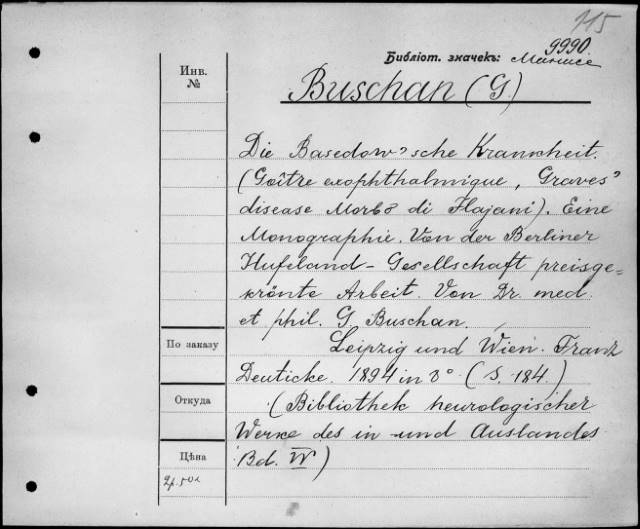 115
9990
Библіот. значекъ:
Инв.
№
Buschan (G.)
Die Basedow'sche Krankheit.
(Goître exophthalmique, Graves'
disease Morbo di Flajani). Eine
Monographie. Von der Berliner
Hufeland-Gesellschaft preisge-
krönte Arbeit. Von Dr. med.
et phil. G. Buschan.
По заказу
Leipzig und Wien. Franz
Deuticke. 1894 in 8° (S. 184.)
Откуда
(Bibliothek neurologischer
Werke des in- und Auslandes
Цѣна
Bd. IV)